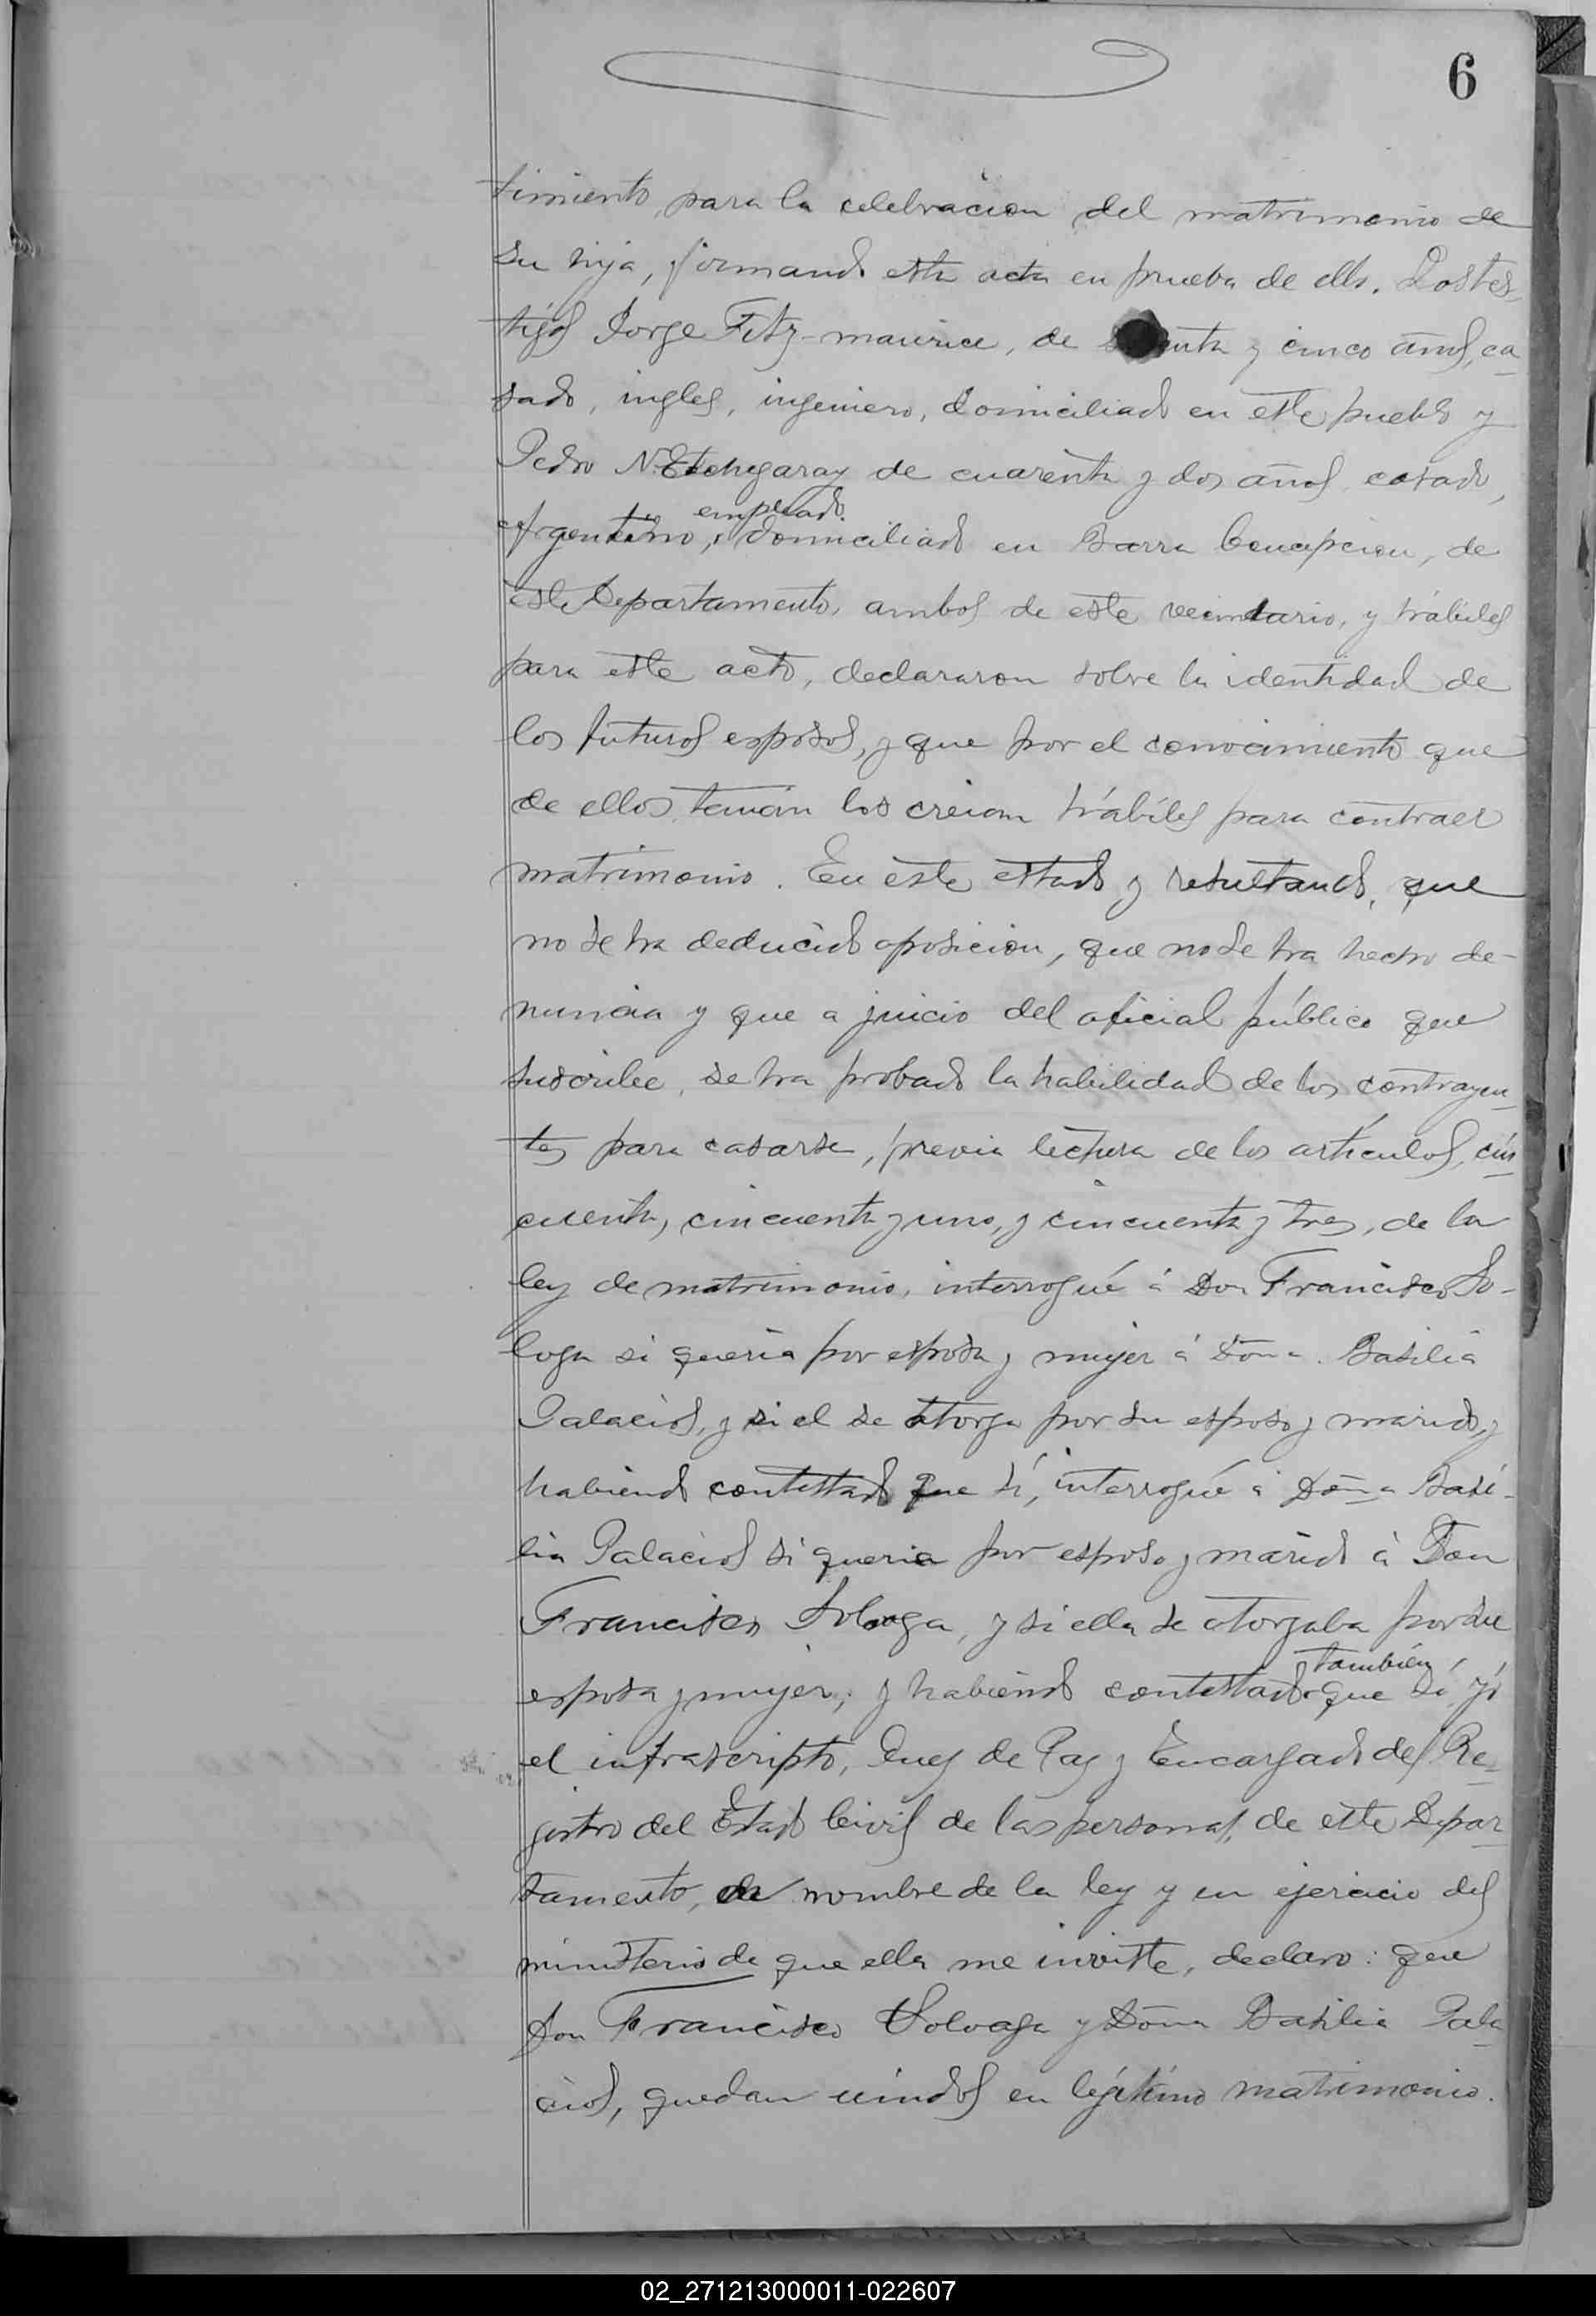 6
timiento, para la celebracion del matrimonio de
su hija, firmando esta acta en prueba de ello. Los tes-
tigos Jorge Fitz-maurice, de y cinco años, ca-
sado, ingles, ingeniero, domiciliado en este pueblo y
Pedro N. Etchegaray de cuarenta y dos años casado,
empleado
Argentino, domiciliado en Barra Concepcion, de
este Departamento, ambos de este vecindario, y hábiles
para este acto, declararon sobre la identidad de
los futuros esposos, y que por el conocimiento que
de ellos tenian los creian hábiles para contraer
matrimonio. En este estado y resultando, que
no se ha deducido oposicion, que no se ha hecho de-
nuncia y que a juicio del oficial público que
suscribe, se ha probado la habilidad de los contrayen-
tes para casarse, previa lectura de los artículos, cin-
cuenta, cincuenta y uno, y cincuenta y tres, de la
ley de matrimonio, interrogué á Don Francisco So-
loga si queria por esposa y mujer á Doña Basilia
Palacios, y si el se otorga por su esposo y marido, y
habiendo contestado que sí, interrogué á Doña Basi-
lia Palacios si queria por esposo y marido á Don
Francisco Soloaga, y si ella se otorgaba por su
también
esposa y mujer; y habiendo contestado que sí, yó
el infrascripto, Juez de Paz y Encargado del Re-
gistro del Estado Civil de las personas, de este Depar-
tamento, en nombre de la ley y en ejercicio del
ministerio de que ella me inviste, declaro: que
Don Francisco Soloaga y Doña Basilia Pala-
cios, quedan unidos en legítimo matrimonio.
02_271213000011-022607